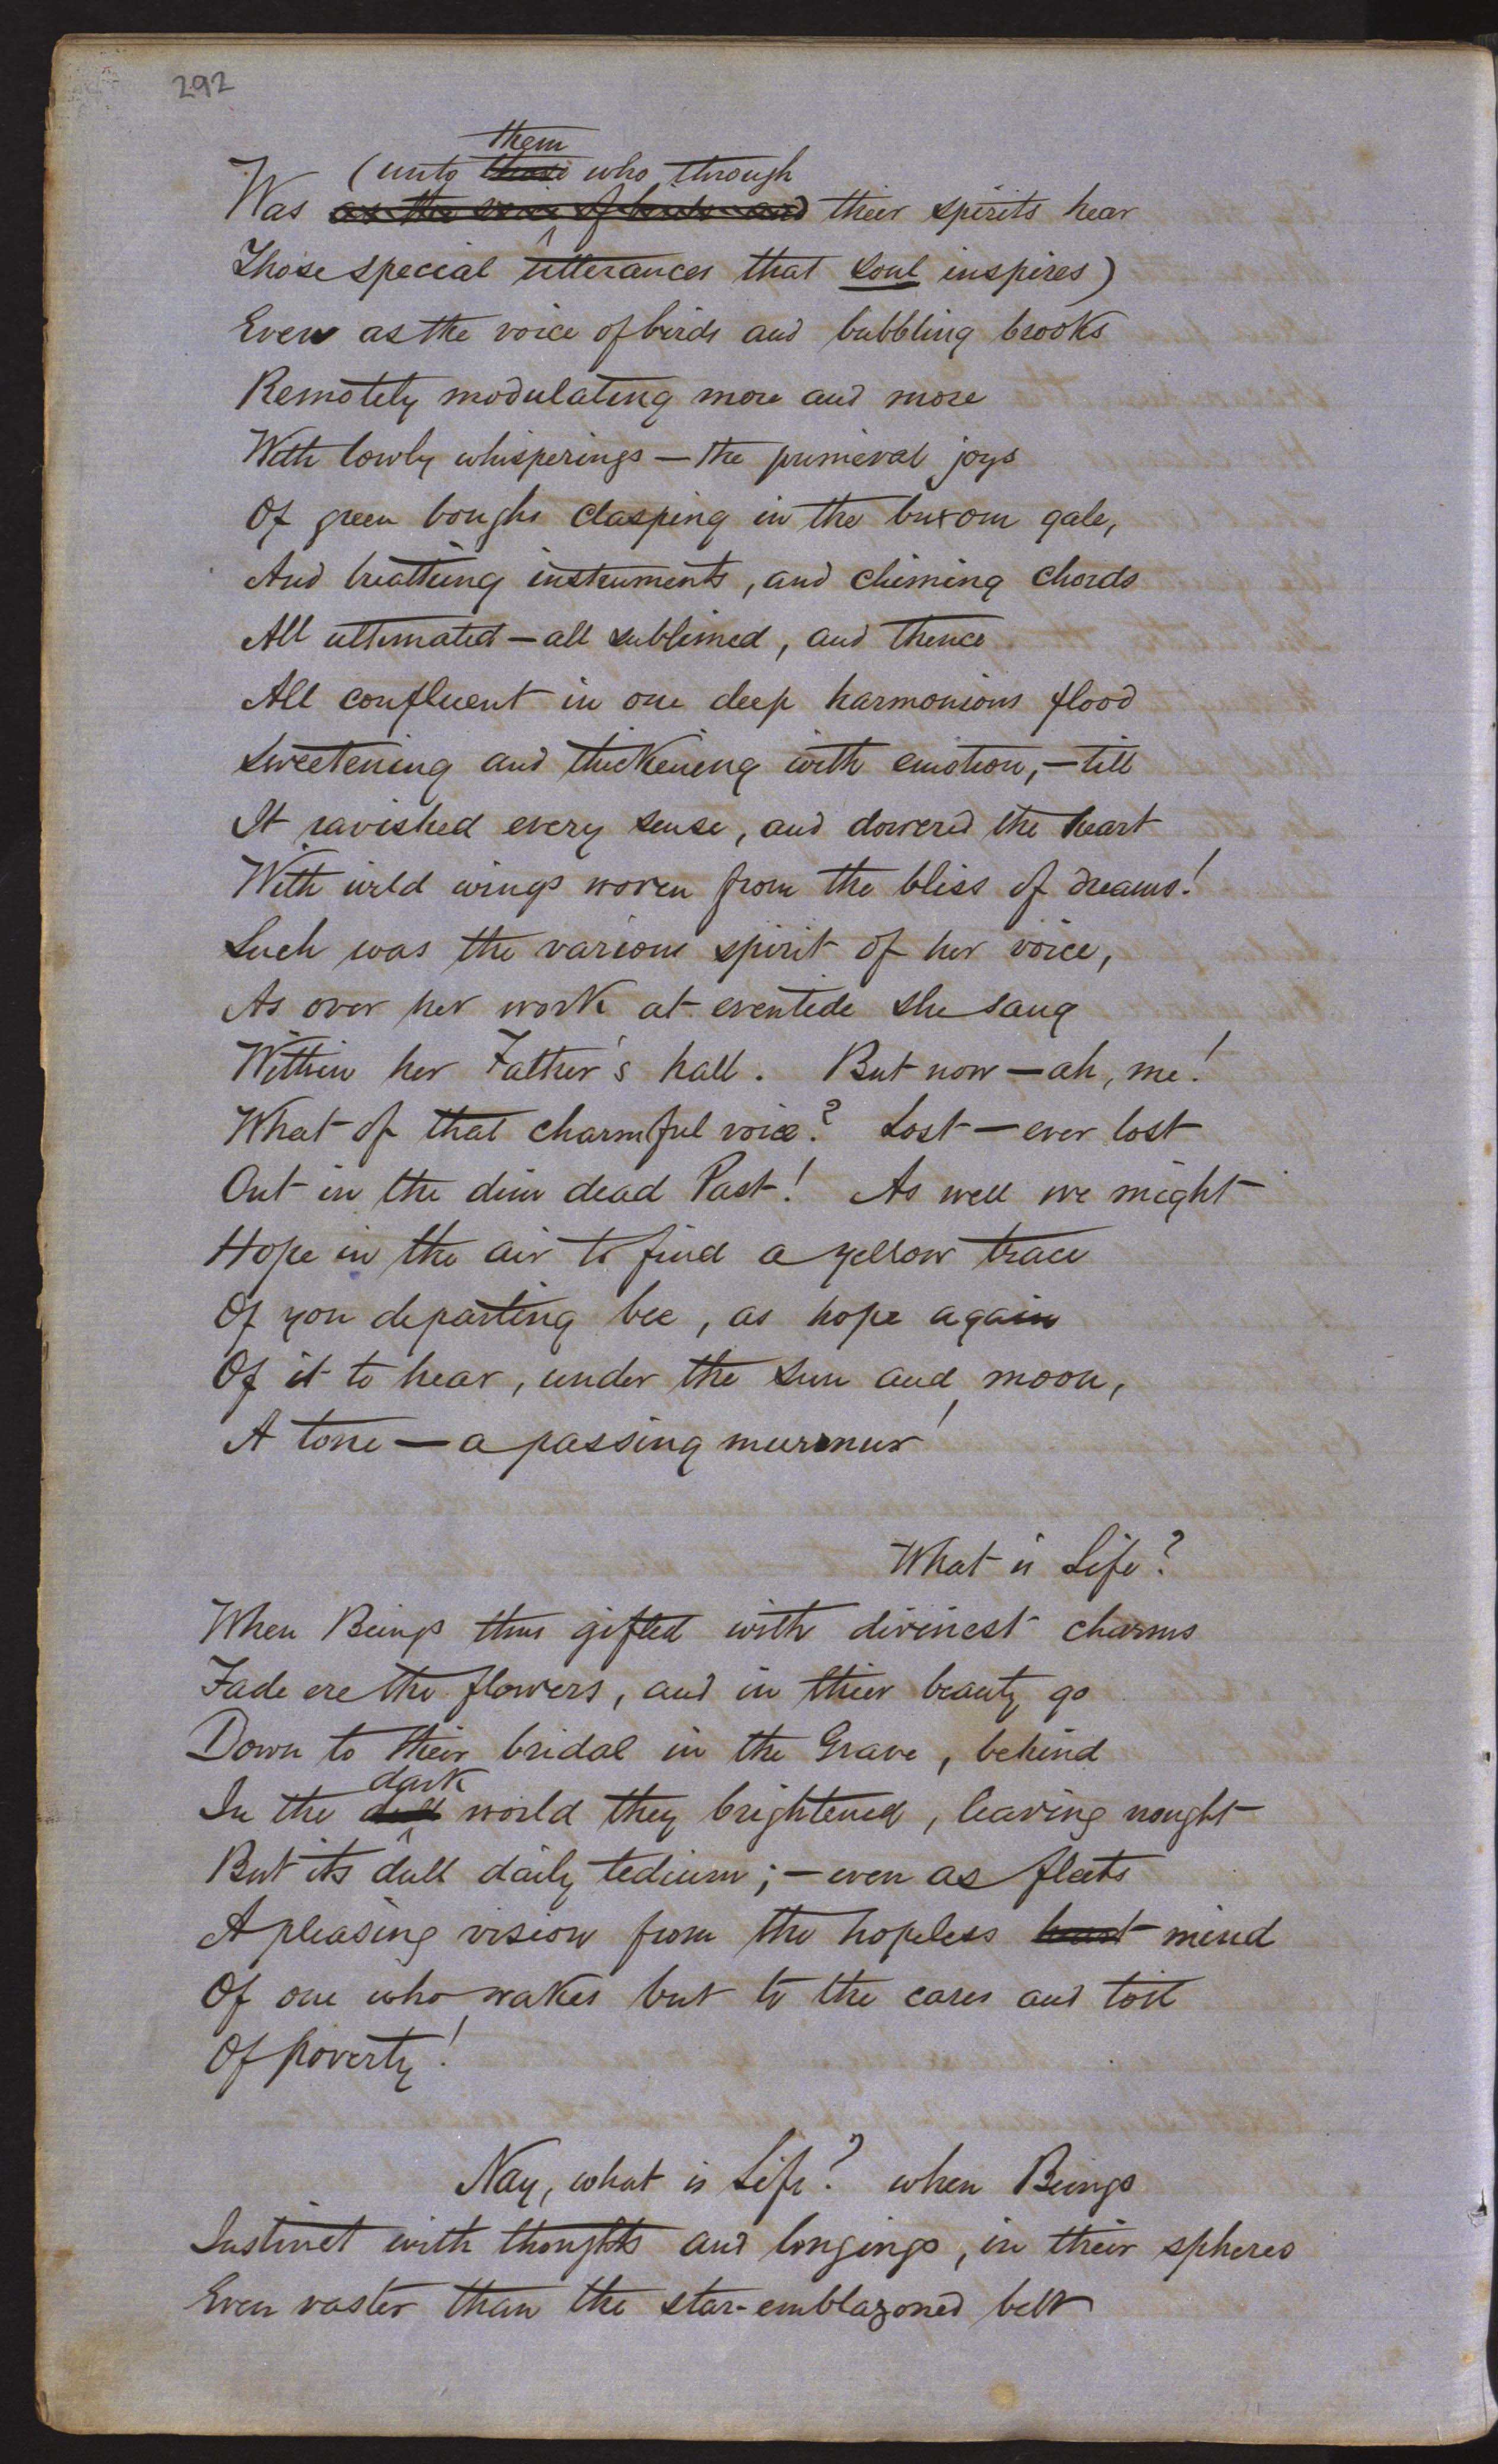 292
them
(unto those who through
Was as the voice of birds and their spirits hear
Those special utterances that soul inspires)
Even as the voice of birds and bubbling brooks
Remotely modulating more and more
With lowly whisperings — the primeval joys
Of green boughs clasping in the buxom gale,
And breathing instruments, and chiming chords
All ultimated — all sublimed, and thence
All confluent in one deep harmonious flood
Sweetening and thickening with emotion, — till
It ravished every sense, and dowered the heart
With wild wings woven from the bliss of dreams!
Such was the various spirit of her voice,
As over her work at eventide she sang
Within her Father's hall. But now — ah, me!
What of that charmful voice? Lost — ever lost
Out in the dim dead Past! As well we might
Hope in the air to find a yellow trace
Of yon departing bee, as hope again
Of it to hear, under the sun and moon,
A tone — a passing murmur!
What is Life?
When Beings thus gifted with divinest charms
Fade ere the flowers, and in their beauty go
Down to their bridal in the Grave, behind
dark
In the dull world they brightened, leaving nought
But its dull daily tedium; — even as fleets
A pleasing vision from the hopeless heart mind
Of one who wakes but to the cares and toil
Of poverty!
Nay, what is Life? when Beings
Instinct with thoughts and longings, in their spheres
Even vaster than the star-emblazoned belt